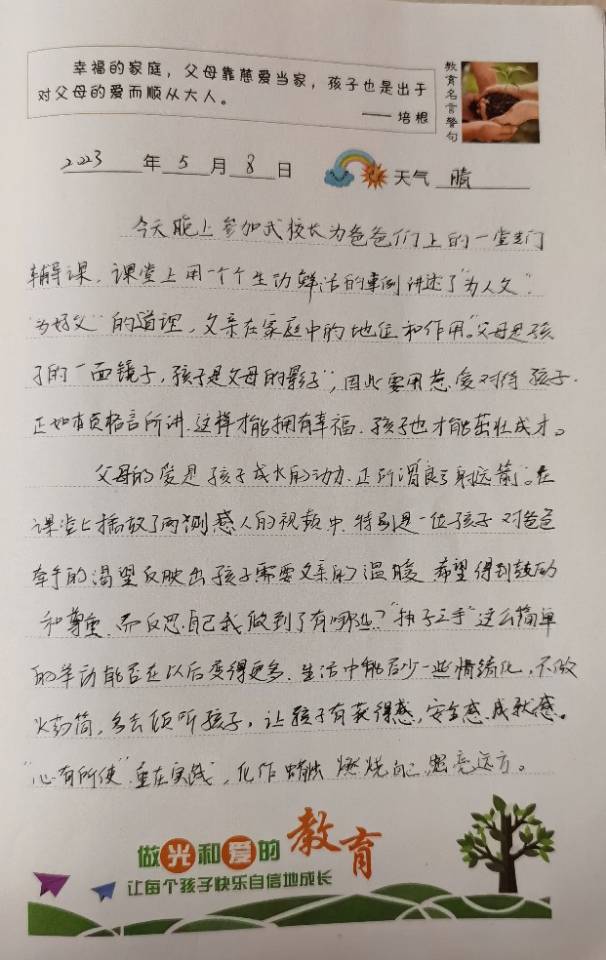 幸福的家庭，父母靠慈爱当家，孩子也是出于
对父母的爱而顺从大人。
—— 培根
教育名言警句
2023 年 5 月 8 日 天气 晴
今天晚上参加武校长为爸爸们上的一堂专门
辅导课，课堂上用一个个生动鲜活的事例讲述了"为人父"
"为好父"的道理，父亲在家庭中的地位和作用。"父母是孩
子的一面镜子，孩子是父母的影子"，因此要用慈爱对待孩子.
正如本页格言所讲.这样才能拥有幸福.孩子也才能茁壮成才。
父母的爱是孩子成长的动力.正所谓"良弓射远箭"。在
课堂上播放了两则感人的视频中.特别是一位孩子对爸爸
牵手的渴望反映出孩子需要父亲的温暖 希望得到鼓励
和尊重.而反思自己我做到了有哪些？"执子之手"这么简单
的举动能否在以后变得更多.生活中能否少一些情绪化，不做
火药筒，多去倾听孩子，让孩子有获得感，安全感.成就感。
"心有所使"重在实践，化作蜡烛 燃烧自己 照亮远方。
做光和爱的教育
让每个孩子快乐自信地成长